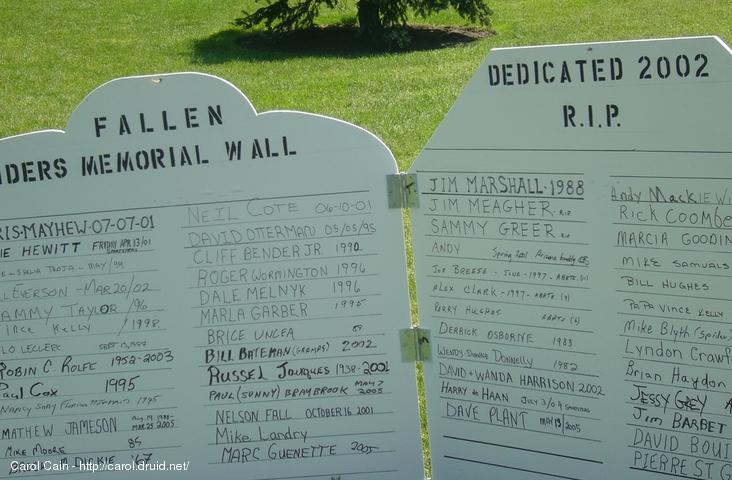 FALLEN
IDERS MEMORIAL WALL
RIS MAYHEW 07-07-01
IE HEWITT FRIDAY APR 13/01
MAY/99
EVERSON - MAR 20/02
AMMY TAYLOR /96
VINCE KELLY /1998
LO LECLERC SEPT
ROBIN C. ROLFE 1952-2003
Paul Cox 1995
NANCY 1995
MATHEW JAMESON AUG 19 1988- MAR 25 2005
MIKE MOORE 85
DICKIE '67
NEIL COTE 06-10-01
DAVID OTTERMAN 05/05/95
CLIFF BENDER JR 1990
ROGER WORMINGTON 1996
DALE MELNYK 1996
MARLA GARBER 1995
BRICE UNCFA
BILL BATEMAN (GRUMPS) 2002
RUSSEL Jacques 1938-2001
PAUL (SONNY) BRAYBROOK MAY 7 2005
NELSON FALL OCTOBER 16 2001
Mike Landry
MARC GUENETTE 2005
DEDICATED 2002
R.I.P.
JIM MARSHALL-1988
JIM MEAGHER R.I.P.
SAMMY GREER R.I.P.
ANDY Spring 2001
JOE BREESE - JUNE-1997-ABATE
ALEX CLARK-1997-ABATE
PERRY HUGHES ABATE
DERRICK OSBORNE 1983
WENDY-DIANNE DONNELLY 1982
DAVID + WANDA HARRISON 2002
HARRY de HAAN JULY 3/04
DAVE PLANT MAY 13/2005
Andy MacKie Wi
RICK COOMBE
MARCIA GOODIN
MIKE SAMUALS
BILL HUGHES
PAPA VINCE KELLY
Mike Blyth (Spider)
Lyndon Crawf
Brian Haydon
JESSY GREY A
Jim BARBET
DAVID BOUI
PIERRE ST G
Carol Cain - http://carol.druid.net/